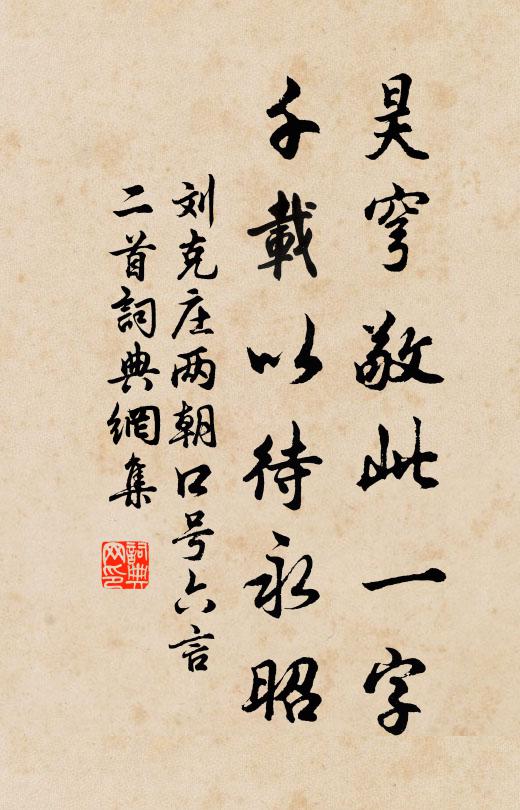 昊穹敬此一字
千載以待永昭
刘克庄两朝口号六言
二首詞典網集
詞典
网印